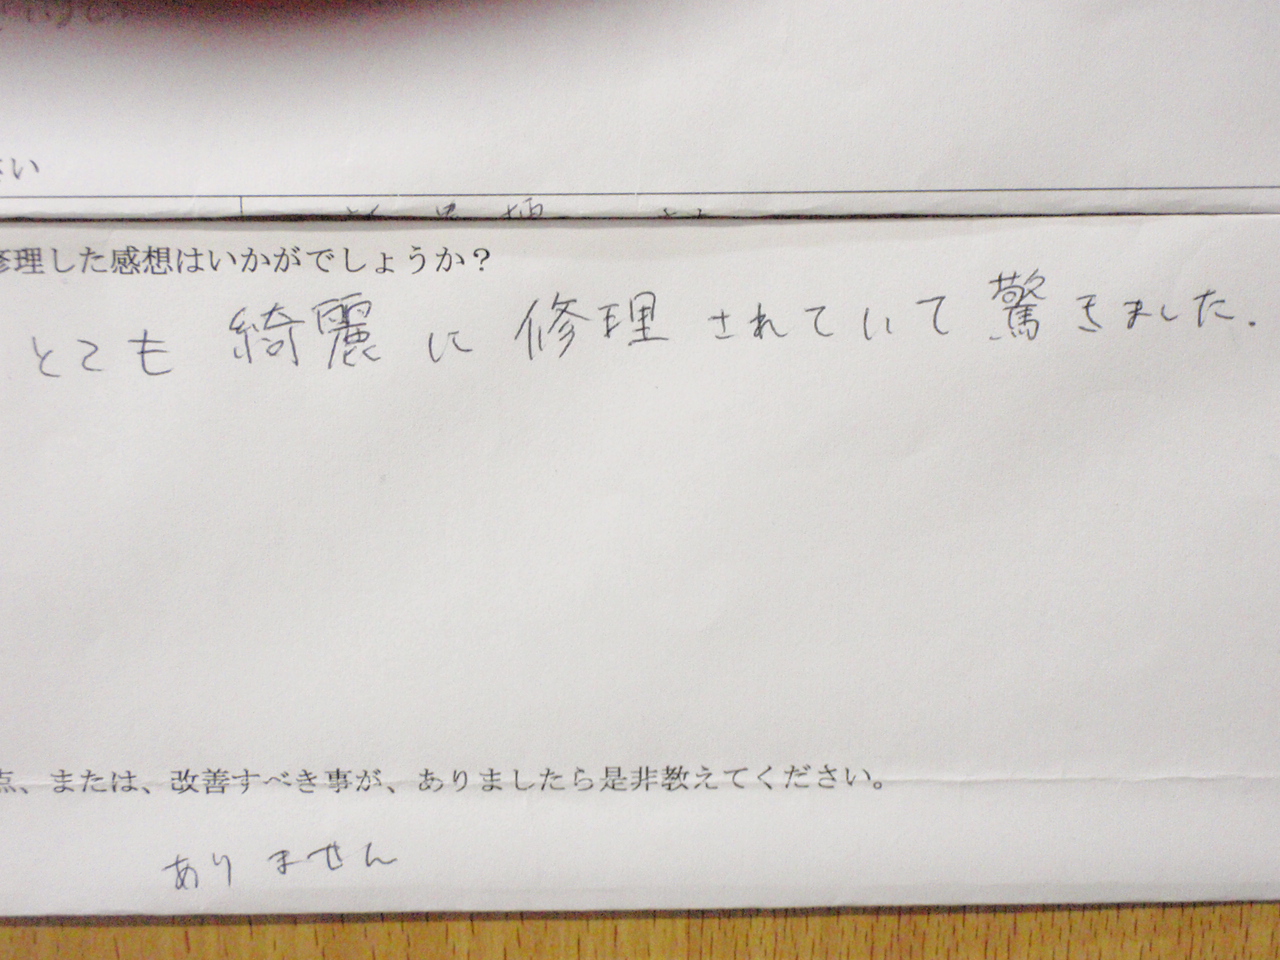 さい
修理した感想はいかがでしょうか？
とても綺麗に修理されていて驚きました.
点、または、改善すべき事が、ありましたら是非教えてください。
ありません